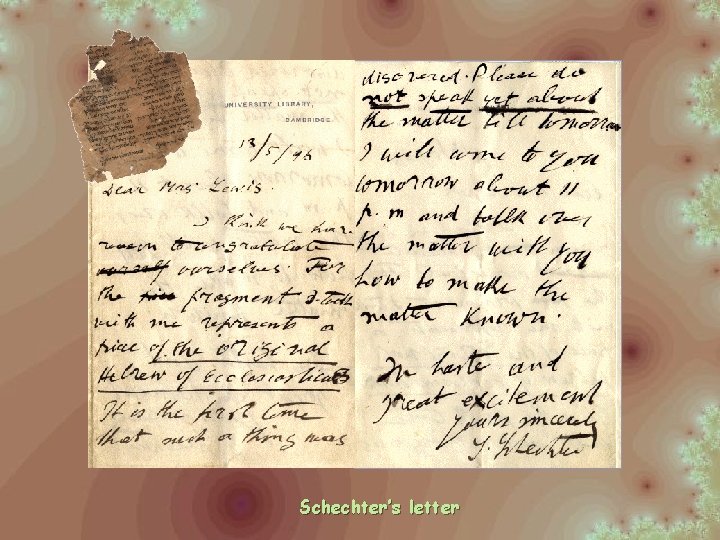 UNIVERSITY LIBRARY,
CAMBRIDGE.
13/5/96
Dear Mrs Lewis.
I think we have
reason to congratulate
ourself ourselves. For
the fragment I took
with me represents a
piece of the original
Hebrew of Ecclesiasticus
It is the first time
that such a thing was
discovered. Please do
not speak yet about
the matter till tomorrow
I will come to you
tomorrow about 11
p.m and talk over
the matter with you
how to make the
matter known.
In haste and
great excitement
Yours sincerely
S. Schechter
Schechter's letter